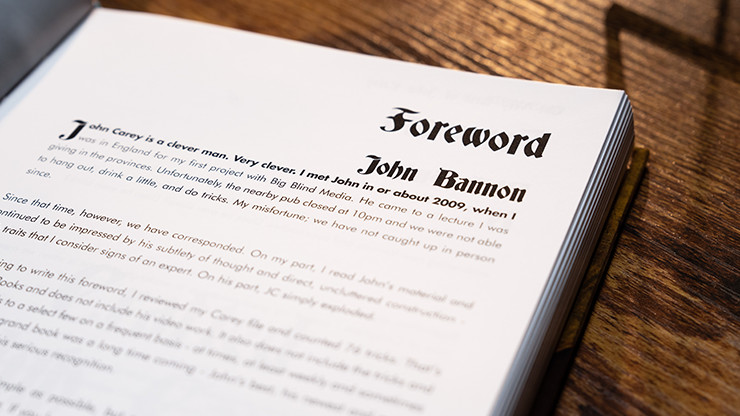 Foreword
John Bannon
John Carey is a clever man. Very clever. I met John in or about 2009, when I
was in England for my first project with Big Blind Media. He came to a lecture I was
giving in the provinces. Unfortunately, the nearby pub closed at 10pm and we were not able
to hang out, drink a little, and do tricks. My misfortune; we have not caught up in person
since.
Since that time, however, we have corresponded. On my part, I read John's material and
ontinued to be impressed by his subtlety of thought and direct, uncluttered construction -
traits that I consider signs of an expert. On his part, JC simply exploded.
ing to write this foreword, I reviewed my Carey file and counted 74 tricks. That's
Books and does not include his video work. It also does not include the tricks and
s to a select few on a frequent basis - at times, at least weekly and sometimes
grand book was a long time coming - John's best, his rarest and
is serious recognition.
mple as possible,